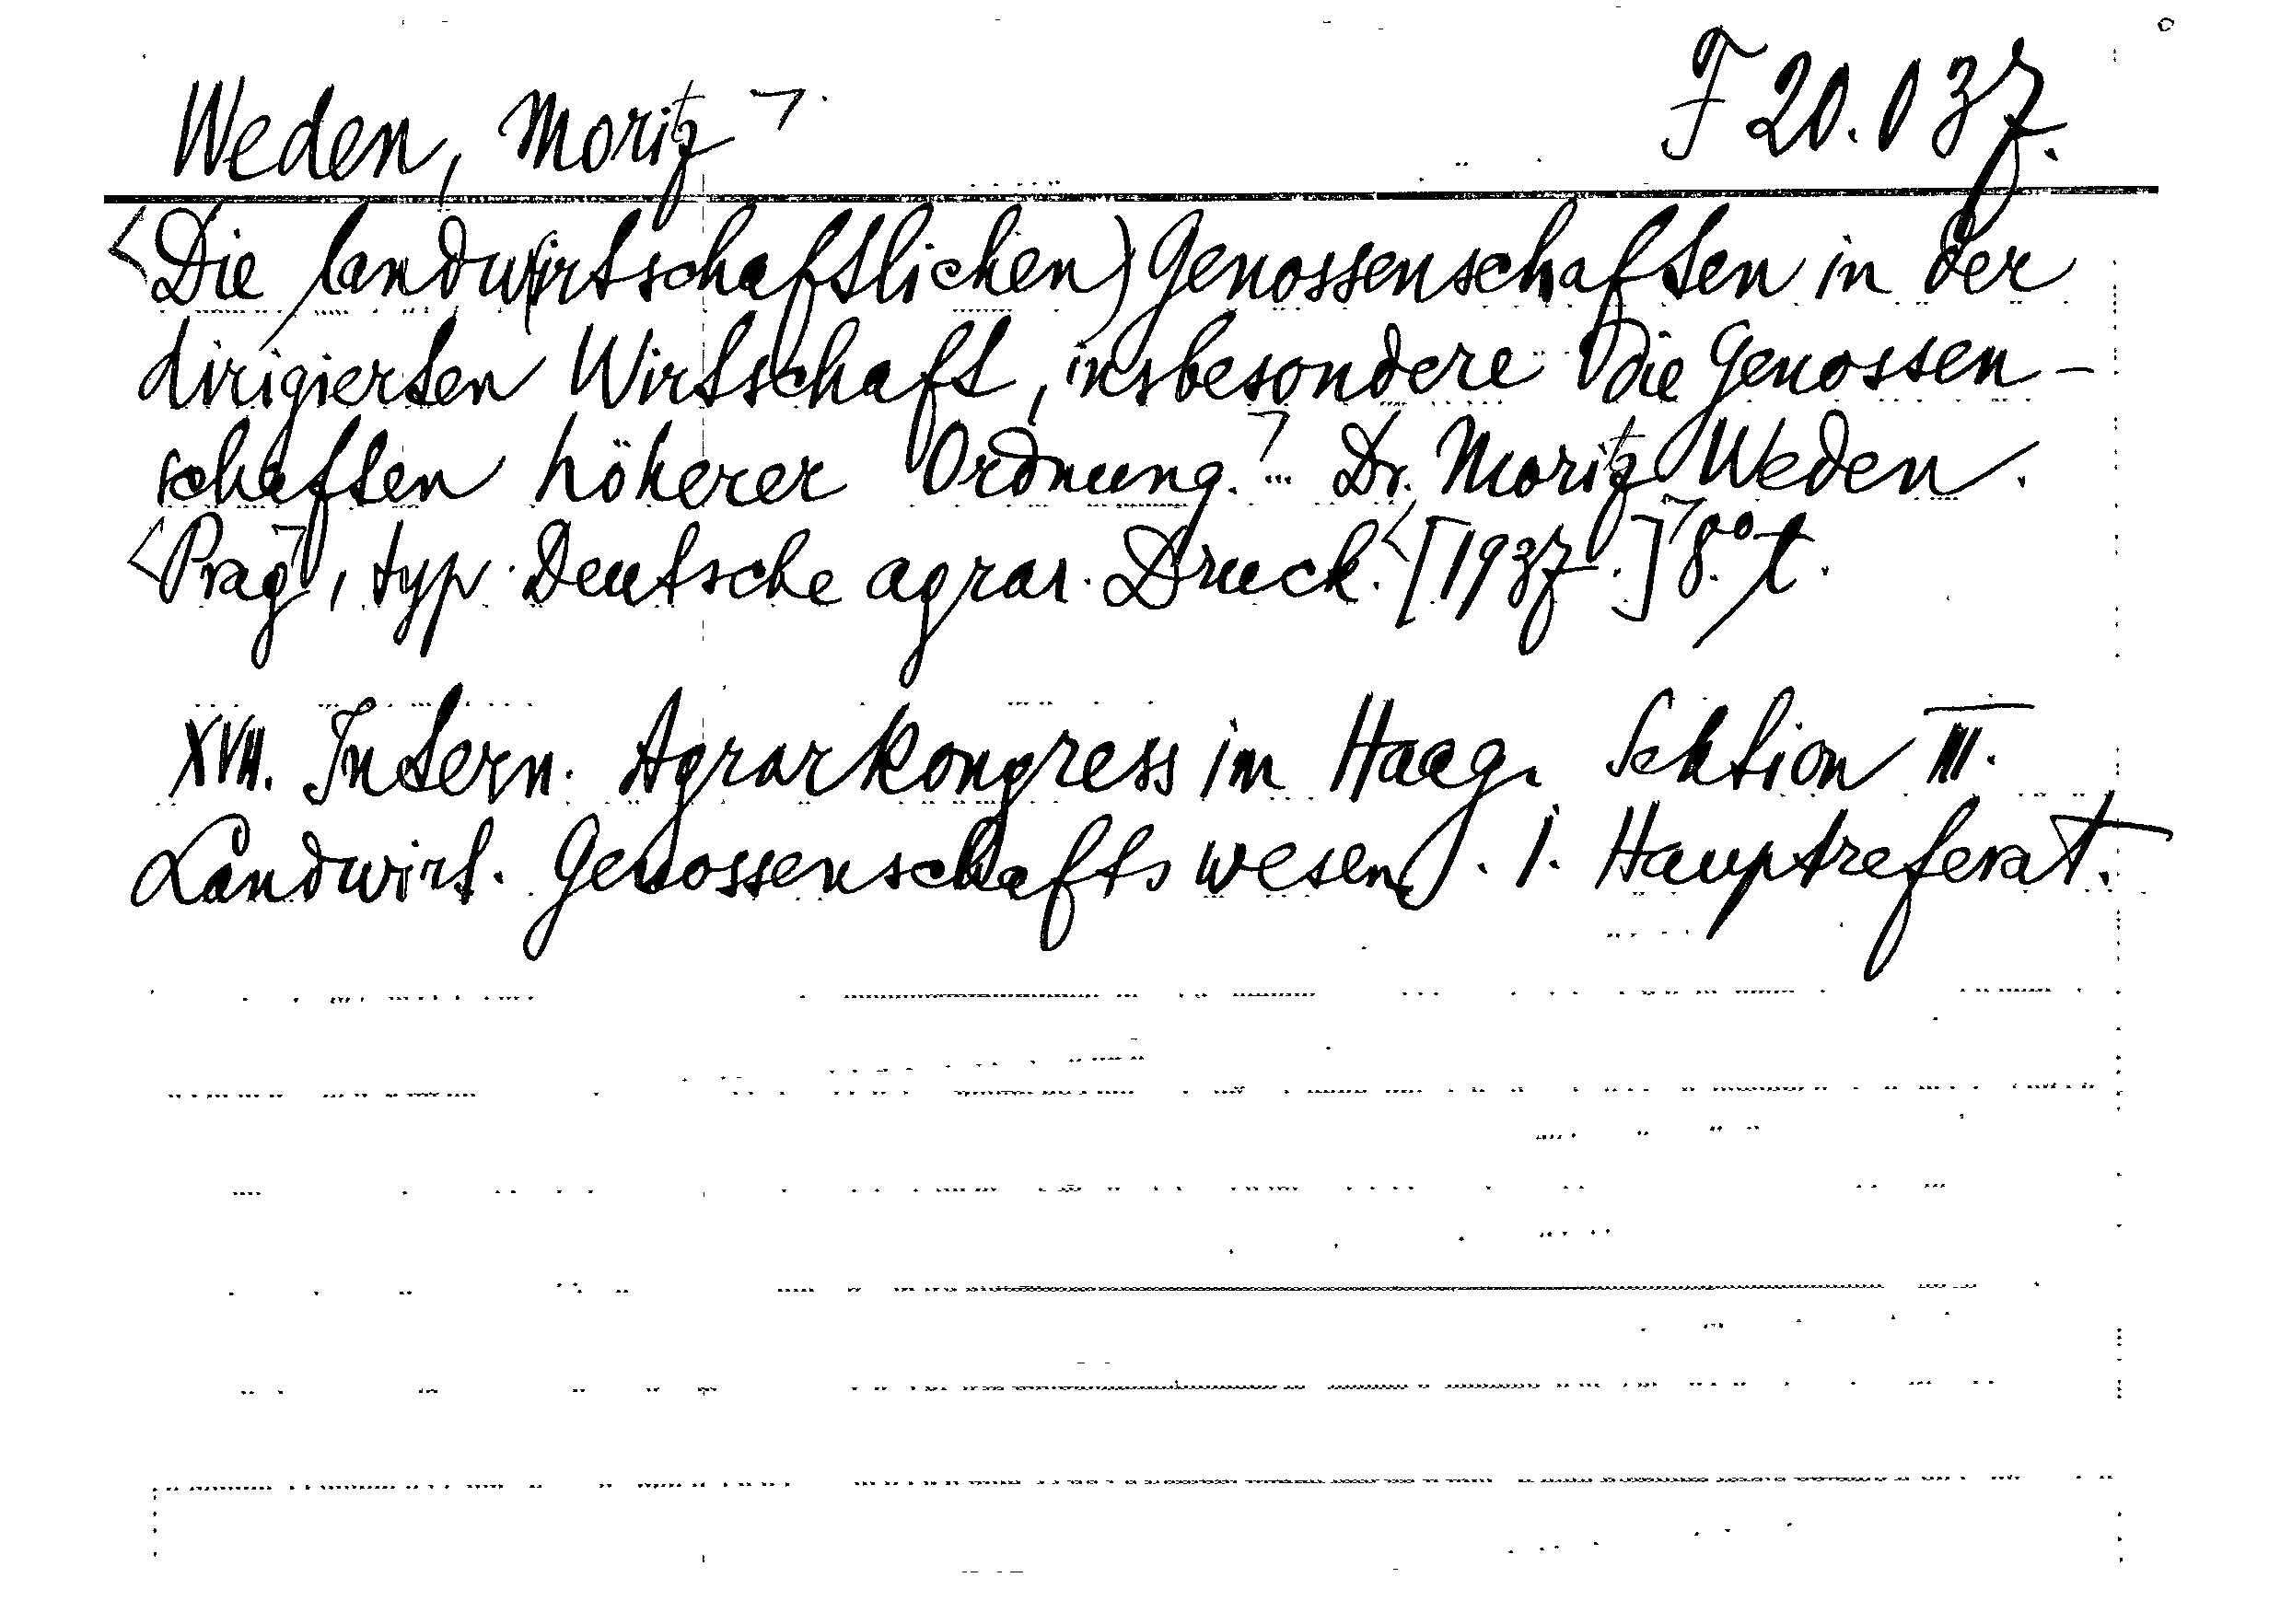 Weden, Moritz ㄱ.
F 20.037.
<Die landw(irtschaftlichen) Genossenschaften in der
dirigierten Wirtschaft, insbesondere die Genossen-
schaften höherer Ordnung.ㄱ... Dr. Moritz Weden.
<Pragㄱ, typ. Deutsche agrar. Druck. <[1937.]ㄱ 8.° t.
XVII. Intern. Agrarkongress im Haag. Sektion III.
Landwirt. Genossenschaftswesen. 1. Hauptreferat.